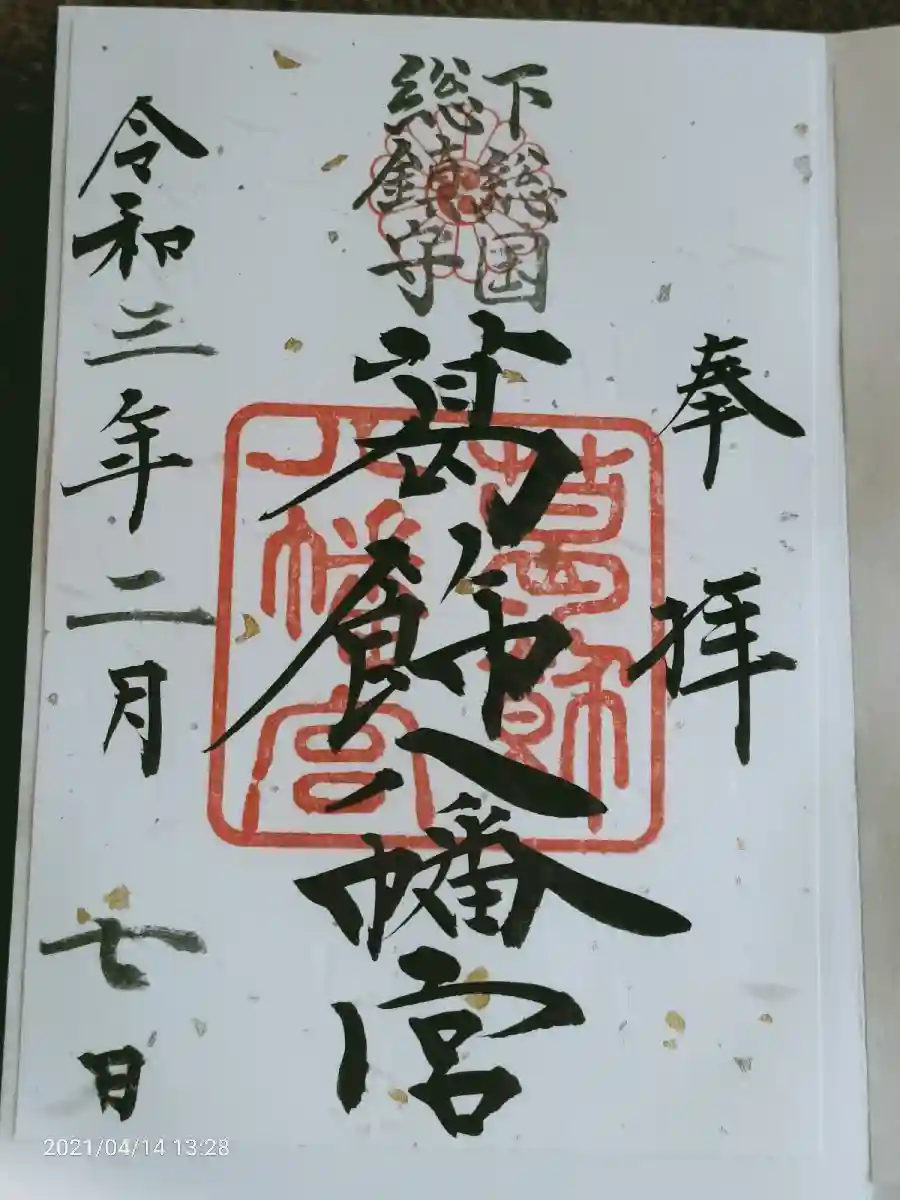 奉拝
下総国
総鎮守
葛飾八幡宮
葛飾
八幡宮
令和三年二月七日
2021/04/14 13:28